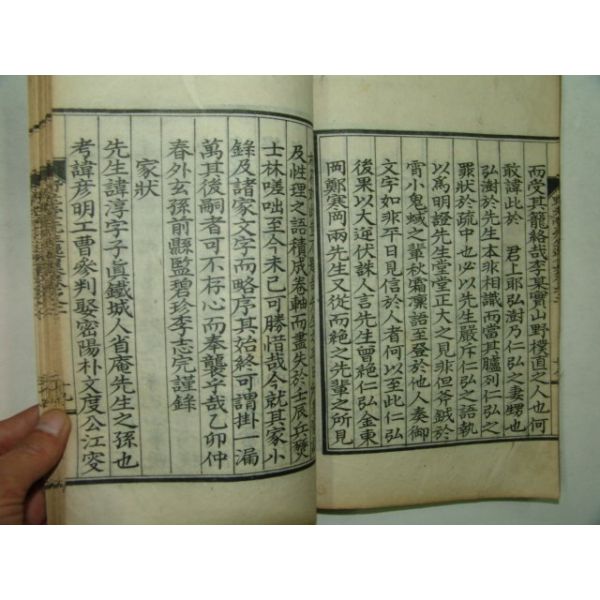 而受其籠絡哉李某實山野樸直之人也何
敢諱此於 君上耶弘澍乃仁弘之妻甥也
弘澍於先生本非相識而當其臚列仁弘之
罪狀於疏中也必以先生嚴斥仁弘之語執
以為明證先生堂堂正大之見非但斧鉞於
宵小鬼蜮之輩秋霜凜語至登於他人奏御
文字如非平日見信於人者何以至此仁弘
後果以大逆伏誅人言先生曾絕仁弘金東
岡鄭寒岡兩先生又從而絕之先輩之所見
及性理之語積成卷軸而盡失於壬辰兵燹
士林嗟咄至今未已可勝惜哉今就其家小
錄及諸家文字而略序其始終可謂掛一漏
萬其後嗣者可不存心而奉襲乎哉乙卯仲
春外玄孫前縣監碧珍李志完謹錄
家狀
先生諱淳字子眞鐵城人省庵先生之孫也
考諱彦明工曹參判娶密陽朴文度公江叓